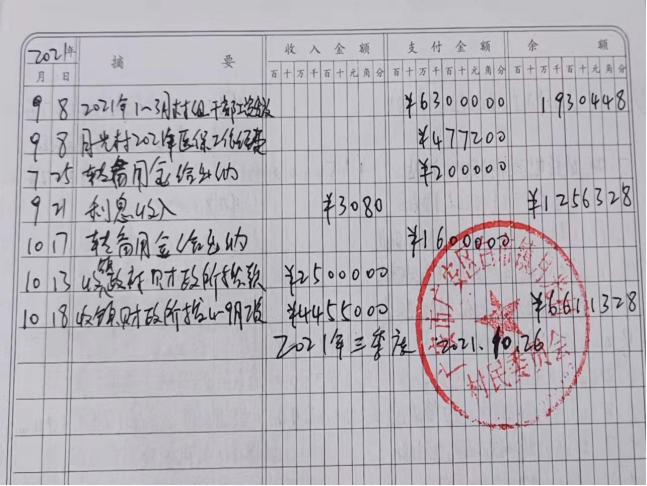 2021年 摘 要 收入金额 支付金额 余 额
月 日 百十万千百十元角分 百十万千百十元角分 百十万千百十元角分
9 8 2021年1-3月村组干部工资 ¥6300000 1930448
9 8 月光村2021年医保工作经费 ¥477200
7 25 转备用金给出纳 ¥200000
9 21 利息收入 ¥3080 ¥1256328
10 17 转备用金给出纳 ¥1600000
10 13 收镇财政所拨款 ¥2500000
10 18 收镇财政所拨4-9月 ¥4455000 ¥6611328
2021年三季度 2021.10.26
村民委员会